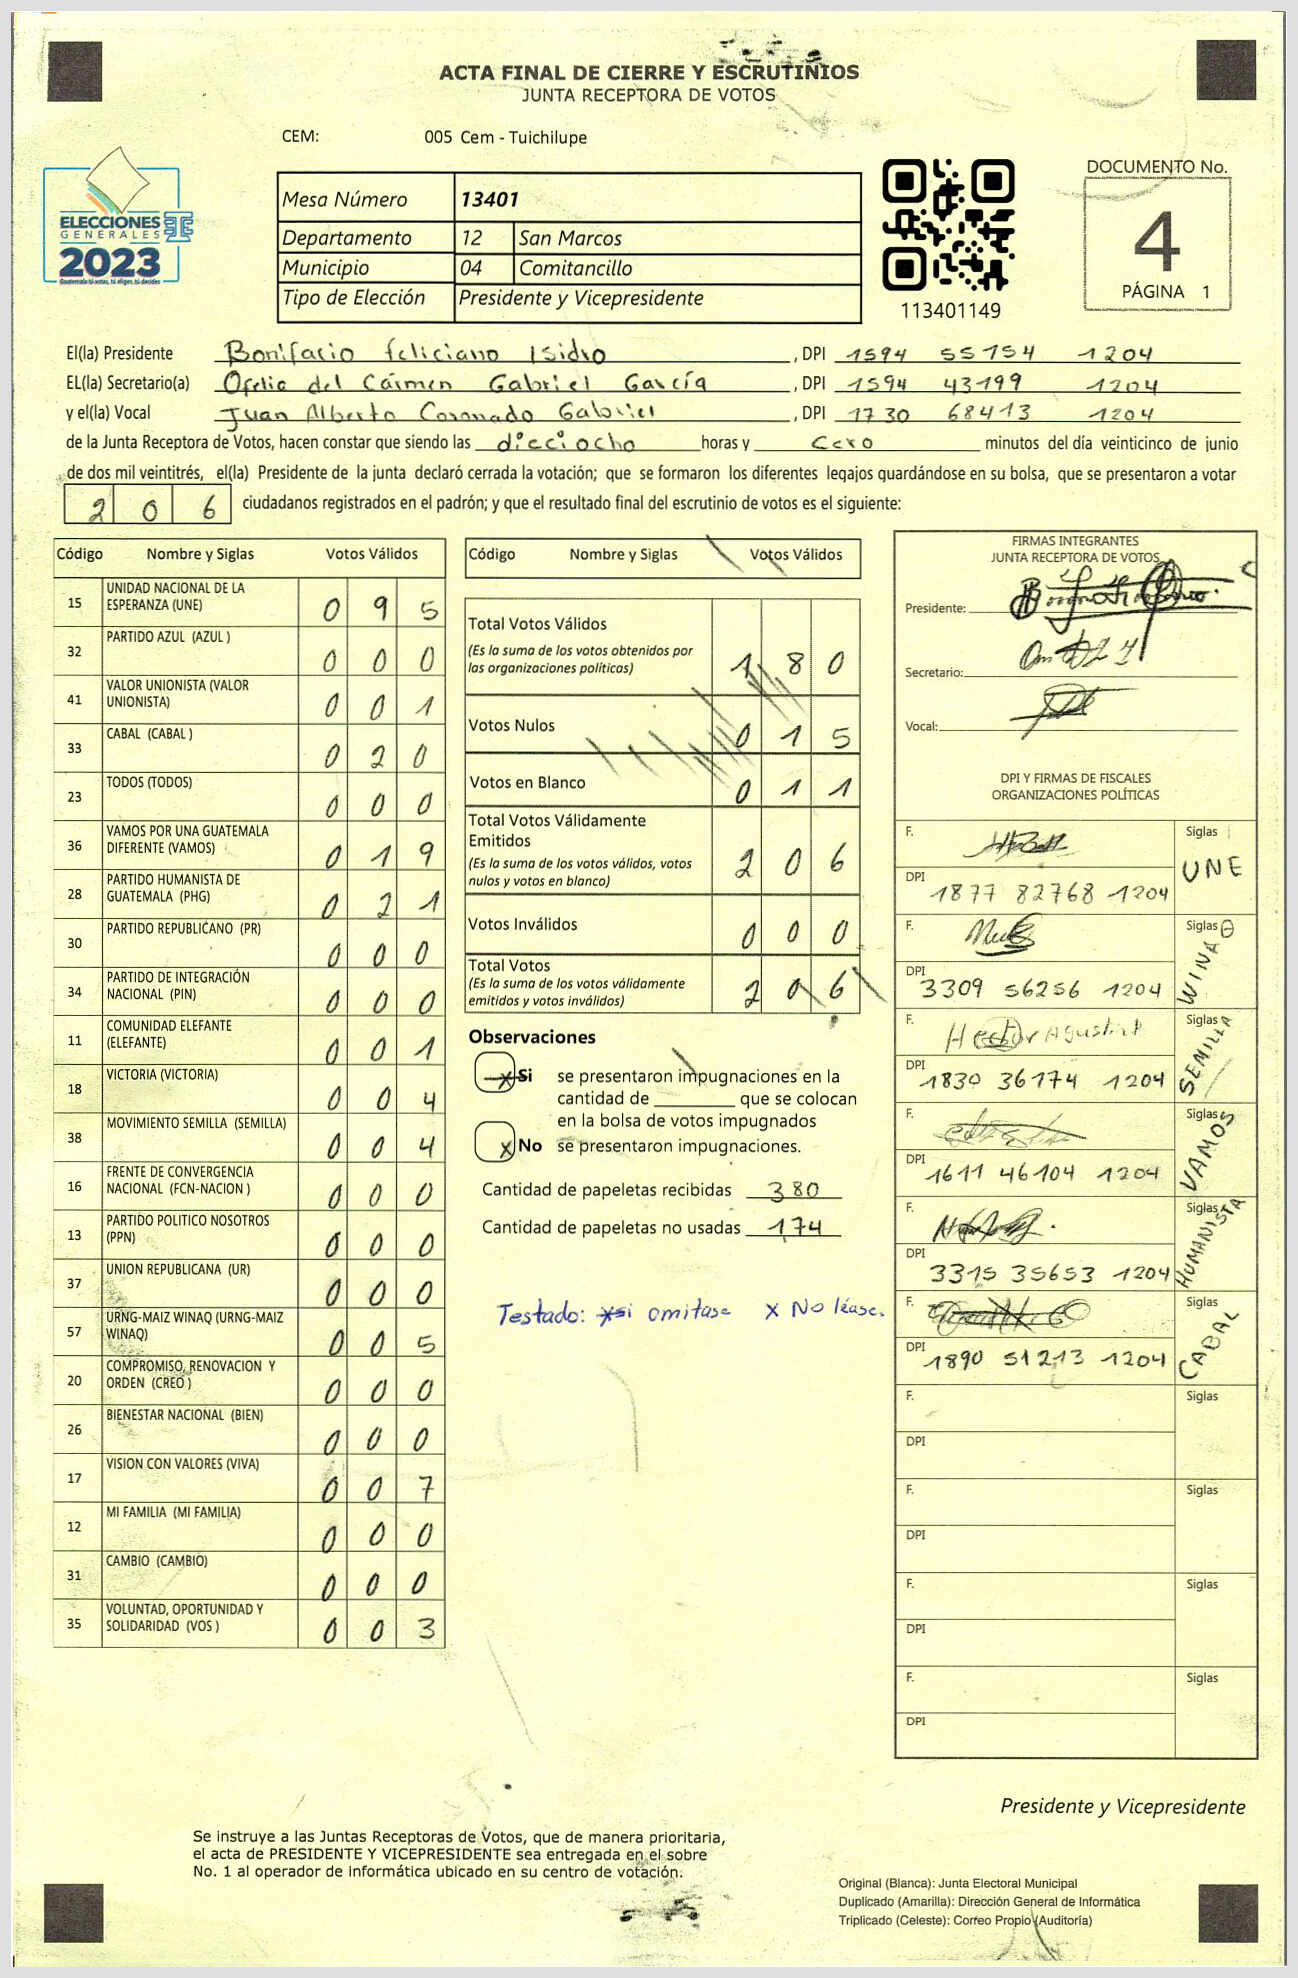 ACTA FINAL DE CIERRE Y ESCRUTINIOS
JUNTA RECEPTORA DE VOTOS
CEM: 005 Cem - Tuichilupe
ELECCIONES
GENERALES
2023
Guatemala tú votas, tú eliges, tú decides
Mesa Número 13401
Departamento 12 San Marcos
Municipio 04 Comitancillo
Tipo de Elección Presidente y Vicepresidente
113401149
DOCUMENTO No.
4
PÁGINA 1
El(la) Presidente Bonifacio feliciano Isidro , DPI 1594 55754 1204
EL(la) Secretario(a) Ofelia del Cármen Gabriel García , DPI 1594 43199 1204
y el(la) Vocal Juan Alberto Coronado Gabriel , DPI 1730 68413 1204
de la Junta Receptora de Votos, hacen constar que siendo las dieciocho horas y cero minutos del día veinticinco de junio
de dos mil veintitrés, el(la) Presidente de la junta declaró cerrada la votación; que se formaron los diferentes legajos quardándose en su bolsa, que se presentaron a votar
206 ciudadanos registrados en el padrón; y que el resultado final del escrutinio de votos es el siguiente:
Código Nombre y Siglas Votos Válidos
15 UNIDAD NACIONAL DE LA ESPERANZA (UNE) 0 9 5
32 PARTIDO AZUL (AZUL ) 0 0 0
41 VALOR UNIONISTA (VALOR UNIONISTA) 0 0 1
33 CABAL (CABAL ) 0 2 0
23 TODOS (TODOS) 0 0 0
36 VAMOS POR UNA GUATEMALA DIFERENTE (VAMOS) 0 1 9
28 PARTIDO HUMANISTA DE GUATEMALA (PHG) 0 2 1
30 PARTIDO REPUBLICANO (PR) 0 0 0
34 PARTIDO DE INTEGRACIÓN NACIONAL (PIN) 0 0 0
11 COMUNIDAD ELEFANTE (ELEFANTE) 0 0 1
18 VICTORIA (VICTORIA) 0 0 4
38 MOVIMIENTO SEMILLA (SEMILLA) 0 0 4
16 FRENTE DE CONVERGENCIA NACIONAL (FCN-NACION ) 0 0 0
13 PARTIDO POLITICO NOSOTROS (PPN) 0 0 0
37 UNION REPUBLICANA (UR) 0 0 0
57 URNG-MAIZ WINAQ (URNG-MAIZ WINAQ) 0 0 5
20 COMPROMISO, RENOVACION Y ORDEN (CREO ) 0 0 0
26 BIENESTAR NACIONAL (BIEN) 0 0 0
17 VISION CON VALORES (VIVA) 0 0 7
12 MI FAMILIA (MI FAMILIA) 0 0 0
31 CAMBIO (CAMBIO) 0 0 0
35 VOLUNTAD, OPORTUNIDAD Y SOLIDARIDAD (VOS ) 0 0 3
Código Nombre y Siglas Votos Válidos
Total Votos Válidos 1 8 0
(Es la suma de los votos obtenidos por
las organizaciones políticas)
Votos Nulos 0 1 5
Votos en Blanco 0 1 1
Total Votos Válidamente
Emitidos 2 0 6
(Es la suma de los votos válidos, votos
nulos y votos en blanco)
Votos Inválidos 0 0 0
Total Votos 2 0 6
(Es la suma de los votos válidamente
emitidos y votos inválidos)
Observaciones
x Si se presentaron impugnaciones en la
cantidad de ________ que se colocan
en la bolsa de votos impugnados
x No se presentaron impugnaciones.
Cantidad de papeletas recibidas 380
Cantidad de papeletas no usadas 174
Testado: xsi omitase x No léase.
FIRMAS INTEGRANTES
JUNTA RECEPTORA DE VOTOS
Presidente:
Secretario:
Vocal:
DPI Y FIRMAS DE FISCALES
ORGANIZACIONES POLÍTICAS
F. Siglas UNE
DPI 1877 82768 1204
F. Siglas WINAQ
DPI 3309 56256 1204
F. Hector Agustin Siglas SEMILLA
DPI 1830 36174 1204
F. Siglas VAMOS
DPI 1611 46104 1204
F. Siglas HUMANISTA
DPI 3315 35653 1204
F. Siglas CABAL
DPI 1890 51213 1204
F. Siglas
DPI
F. Siglas
DPI
F. Siglas
DPI
F. Siglas
DPI
Presidente y Vicepresidente
Se instruye a las Juntas Receptoras de Votos, que de manera prioritaria,
el acta de PRESIDENTE Y VICEPRESIDENTE sea entregada en el sobre
No. 1 al operador de informática ubicado en su centro de votación.
Original (Blanca): Junta Electoral Municipal
Duplicado (Amarilla): Dirección General de Informática
Triplicado (Celeste): Correo Propio (Auditoría)